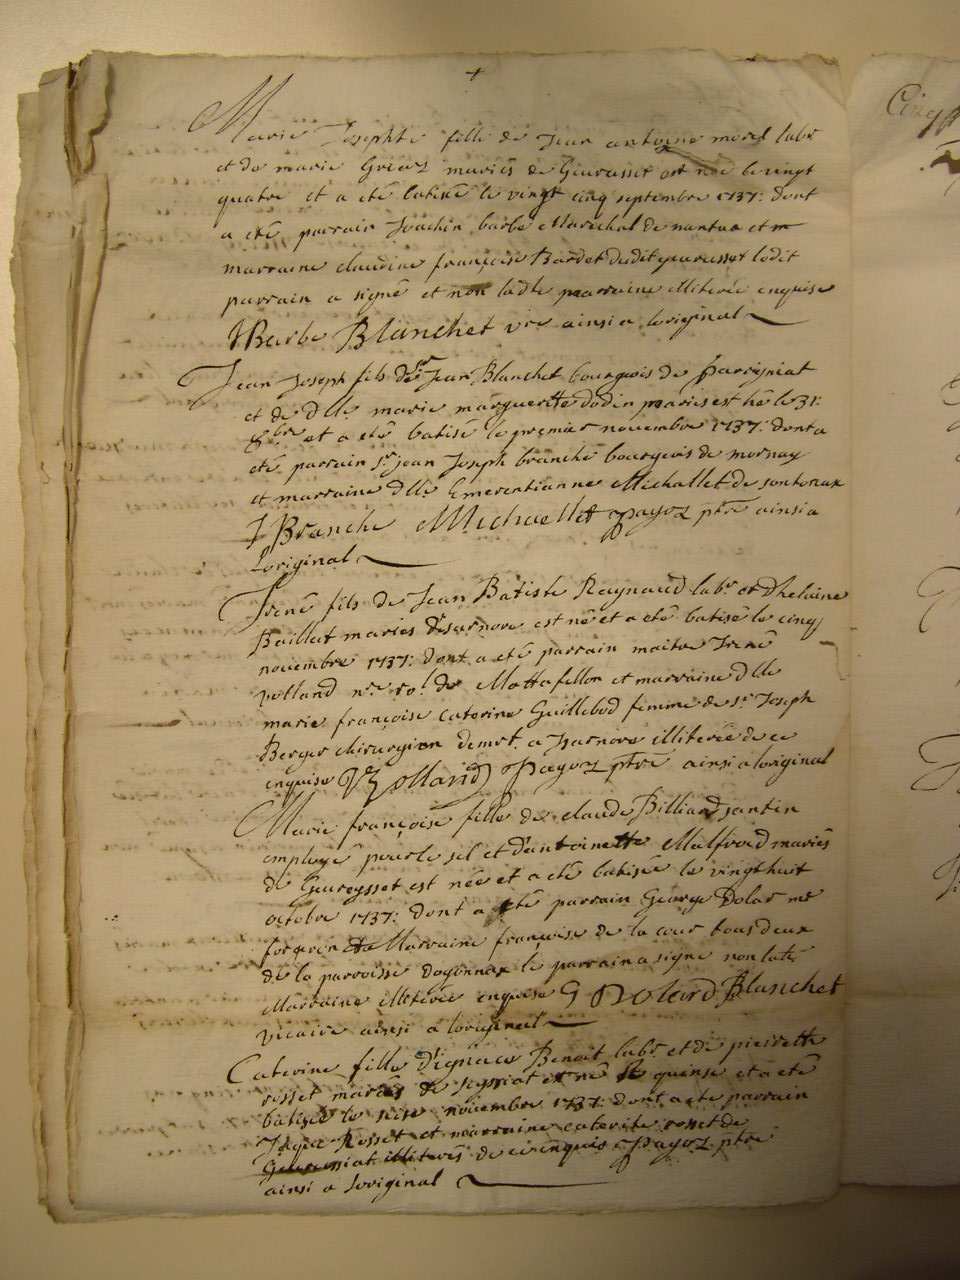 +
Marie Josephte fille de Jean antoine morel labr
et de marie Gréaz mariés de Geurasset est née le vingt
quatre et a eté batisée le vingt cinq septembre 1737: dont
a eté parrain Joachin barbe Marechal de nantua et m
marraine claudine françoise Bardet dudit geurasset ledit
parrain a signé et non ladte marraine illiterée enquise
J Barbe Blanchet vre ainsi a loriginal
Jean Joseph fils de sr Jean Blanchet bourgois de Parrigniat
et de dlle marie marguerite dodin mariés est né le 31:
8bre et a eté batisé le premier novembre 1737: dont a
eté parrain sr jean Joseph branche bourgeois de mornay
et marraine dlle Emerentianne Michallet de sontonax
J Branche Michallet Payoz ptre ainsi a
Loriginal
Irené fils de Jean Batiste Raynaud labr et d'helaine
Baillut mariés disarnore est né et a eté batisé le cinq
novembre 1737: dont a eté parrain maitre Irené
volland nre rol de Mattafellon et marraine dlle
marie françoise caterine Guillebod femme de sr Joseph
Berger chirurgien demrt a Isarnore illiterée de ce
enquise Volland Payoz ptre ainsi a loriginal
Marie françoise fille de claude Billiard santin
employé pour le sel et d'antoinette Malfroid mariés
de Geureysset est née et a eté batisée le vingt huit
octobre 1737: dont a eté parrain George Dolar me
forgeron et Marraine françoise de la cour tous deux
de la parroisse doyonnax le parrain a signé non late
Marraine illiterée enquise G Dolard Blanchet
vicaire ainsi a loriginal
Caterine fille d'ignace Benoit labr et de pierrette
rosset mariés de seyssiat est née le quense et a eté
batisée le seise novembre 1737: dont a eté parrain
Rosset et marraine caterite rosset de
illiterés de ce enquis Payoz ptre
ainsi a loriginal
Cinq